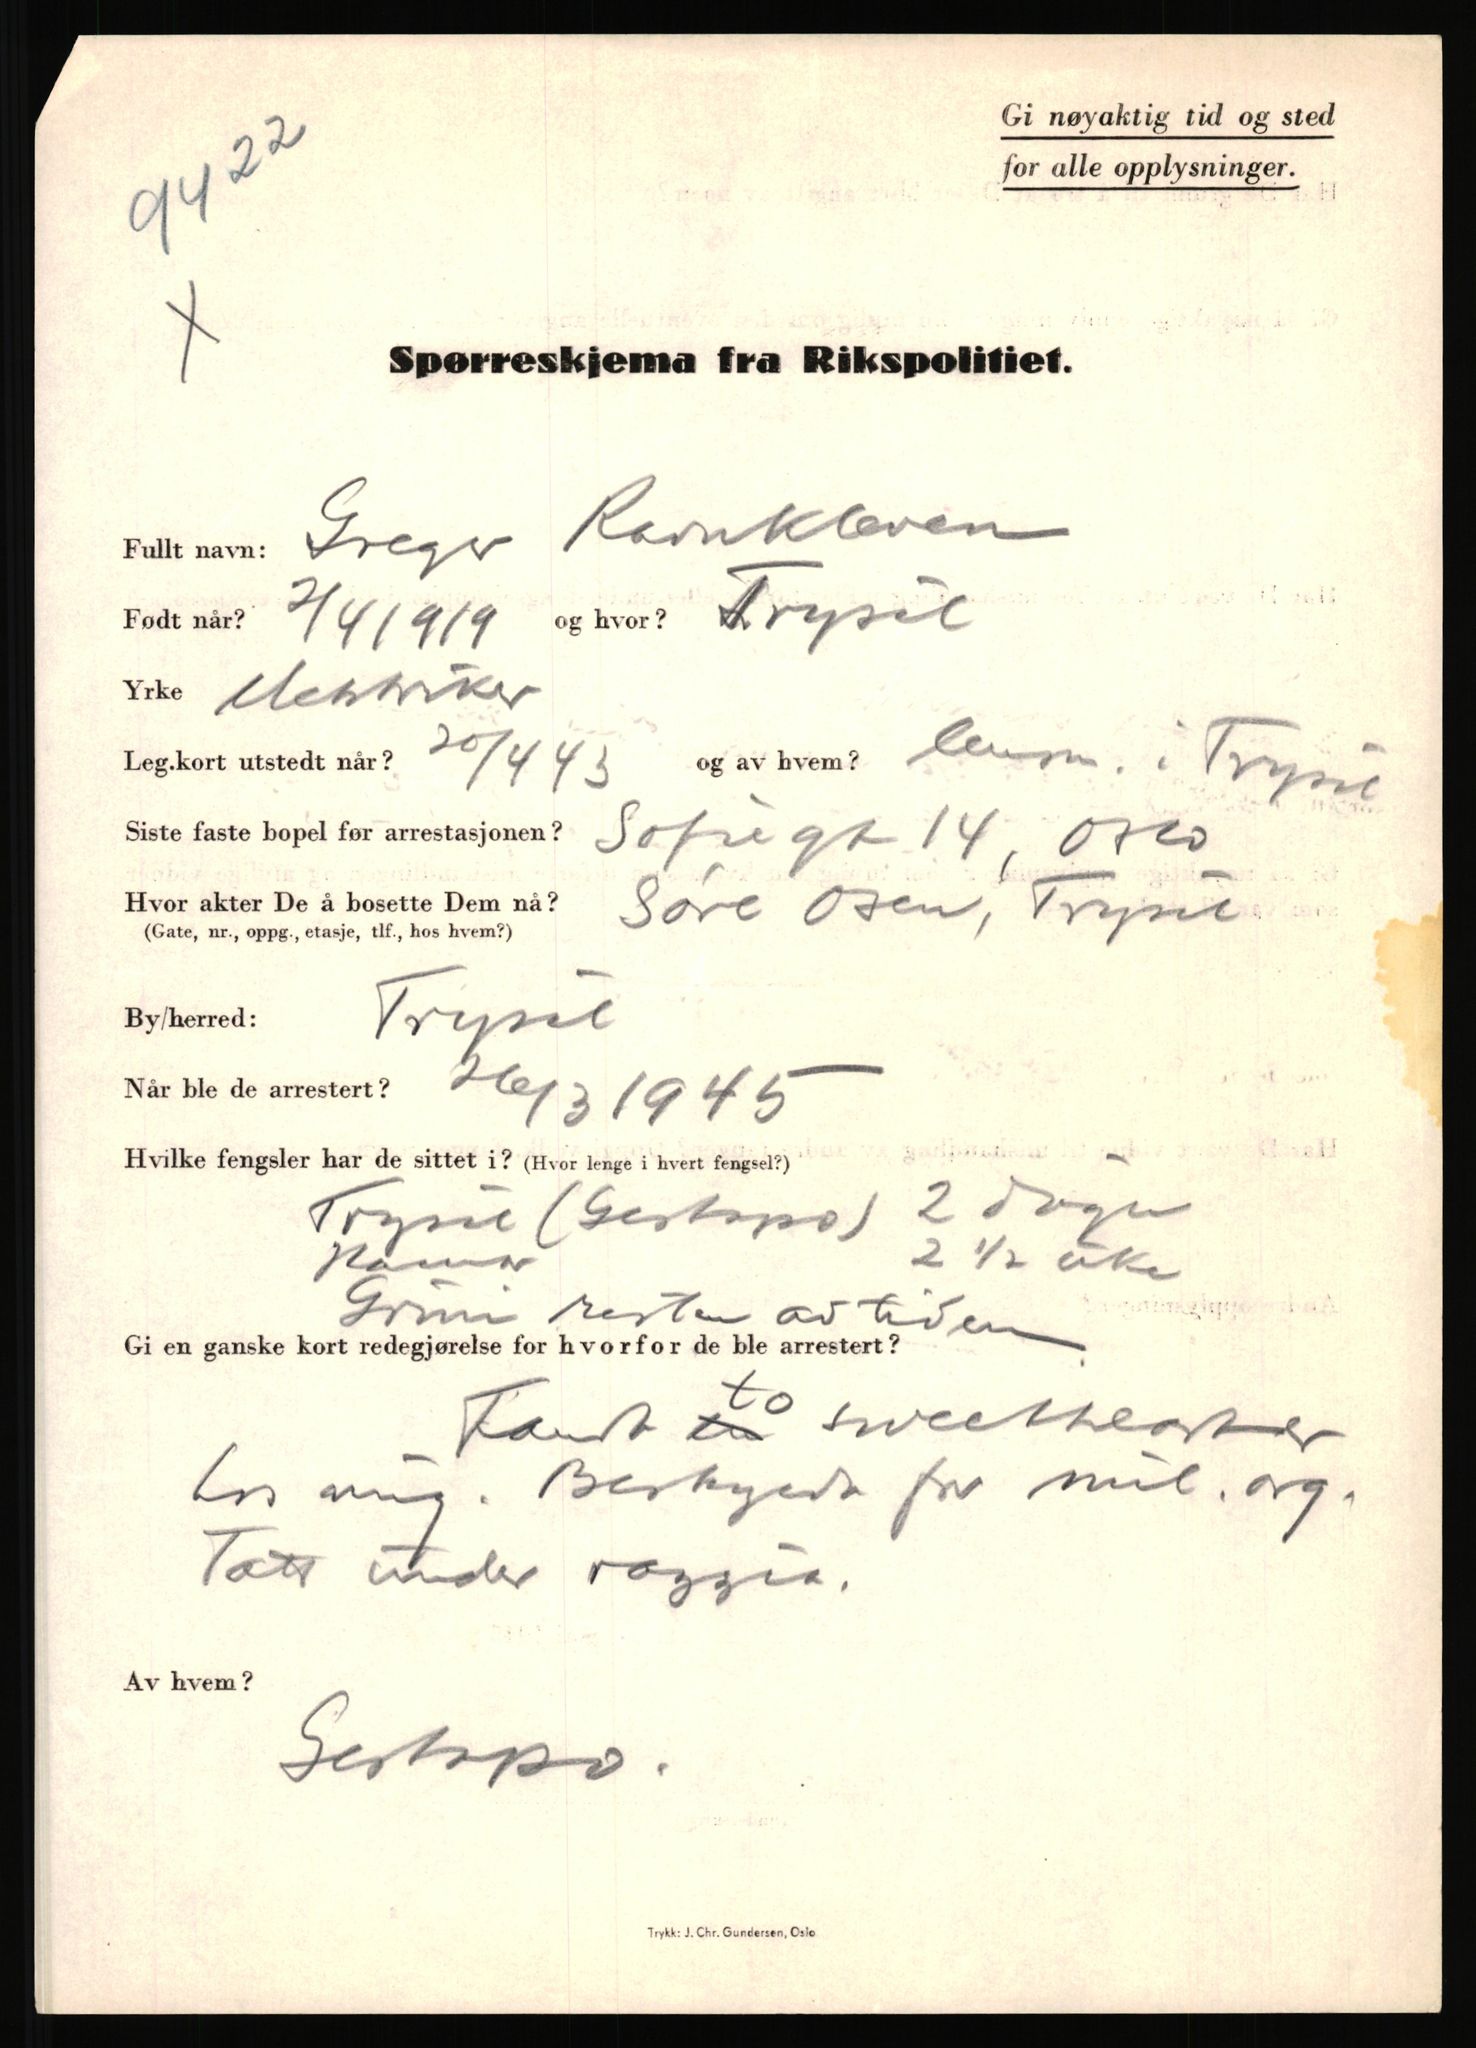 Gi nøyaktig tid og sted
for alle opplysninger.
9422
X
Spørreskjema fra Rikspolitiet.
Fullt navn: Greger Ravnkleven
Født når? 2/4 1919 og hvor? Trysil
Yrke Elektriker
Leg.kort utstedt når? 20/4 43 og av hvem? lensm. i Trysil
Siste faste bopel før arrestasjonen? Sofiegt 14, Oslo
Hvor akter De å bosette Dem nå? Søre Osen, Trysil
(Gate, nr., oppg., etasje, tlf., hos hvem?)
By/herred: Trysil
Når ble de arrestert? 26/3 1945
Hvilke fengsler har de sittet i? (Hvor lenge i hvert fengsel?)
Trysil (Gestapo) 2 døgn
Hamar 2 1/2 uke
Grini resten av tiden.
Gi en ganske kort redegjørelse for hvorfor de ble arrestert?
Fandt to sweetheart'er
hos mig. Beskyldt for mil. org.
Tatt under razzia.
Av hvem?
Gestapo.
Trykk: J. Chr. Gundersen, Oslo